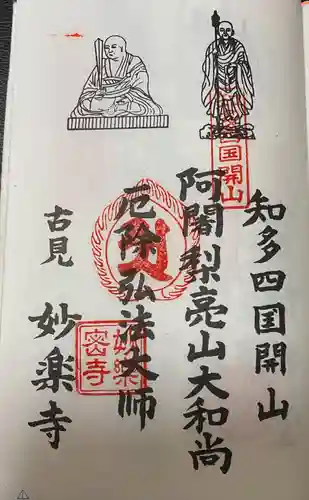 知多四国開山
阿闍梨亮山大和尚
厄除弘法大師
古見
妙楽寺
四国開山
妙楽密寺